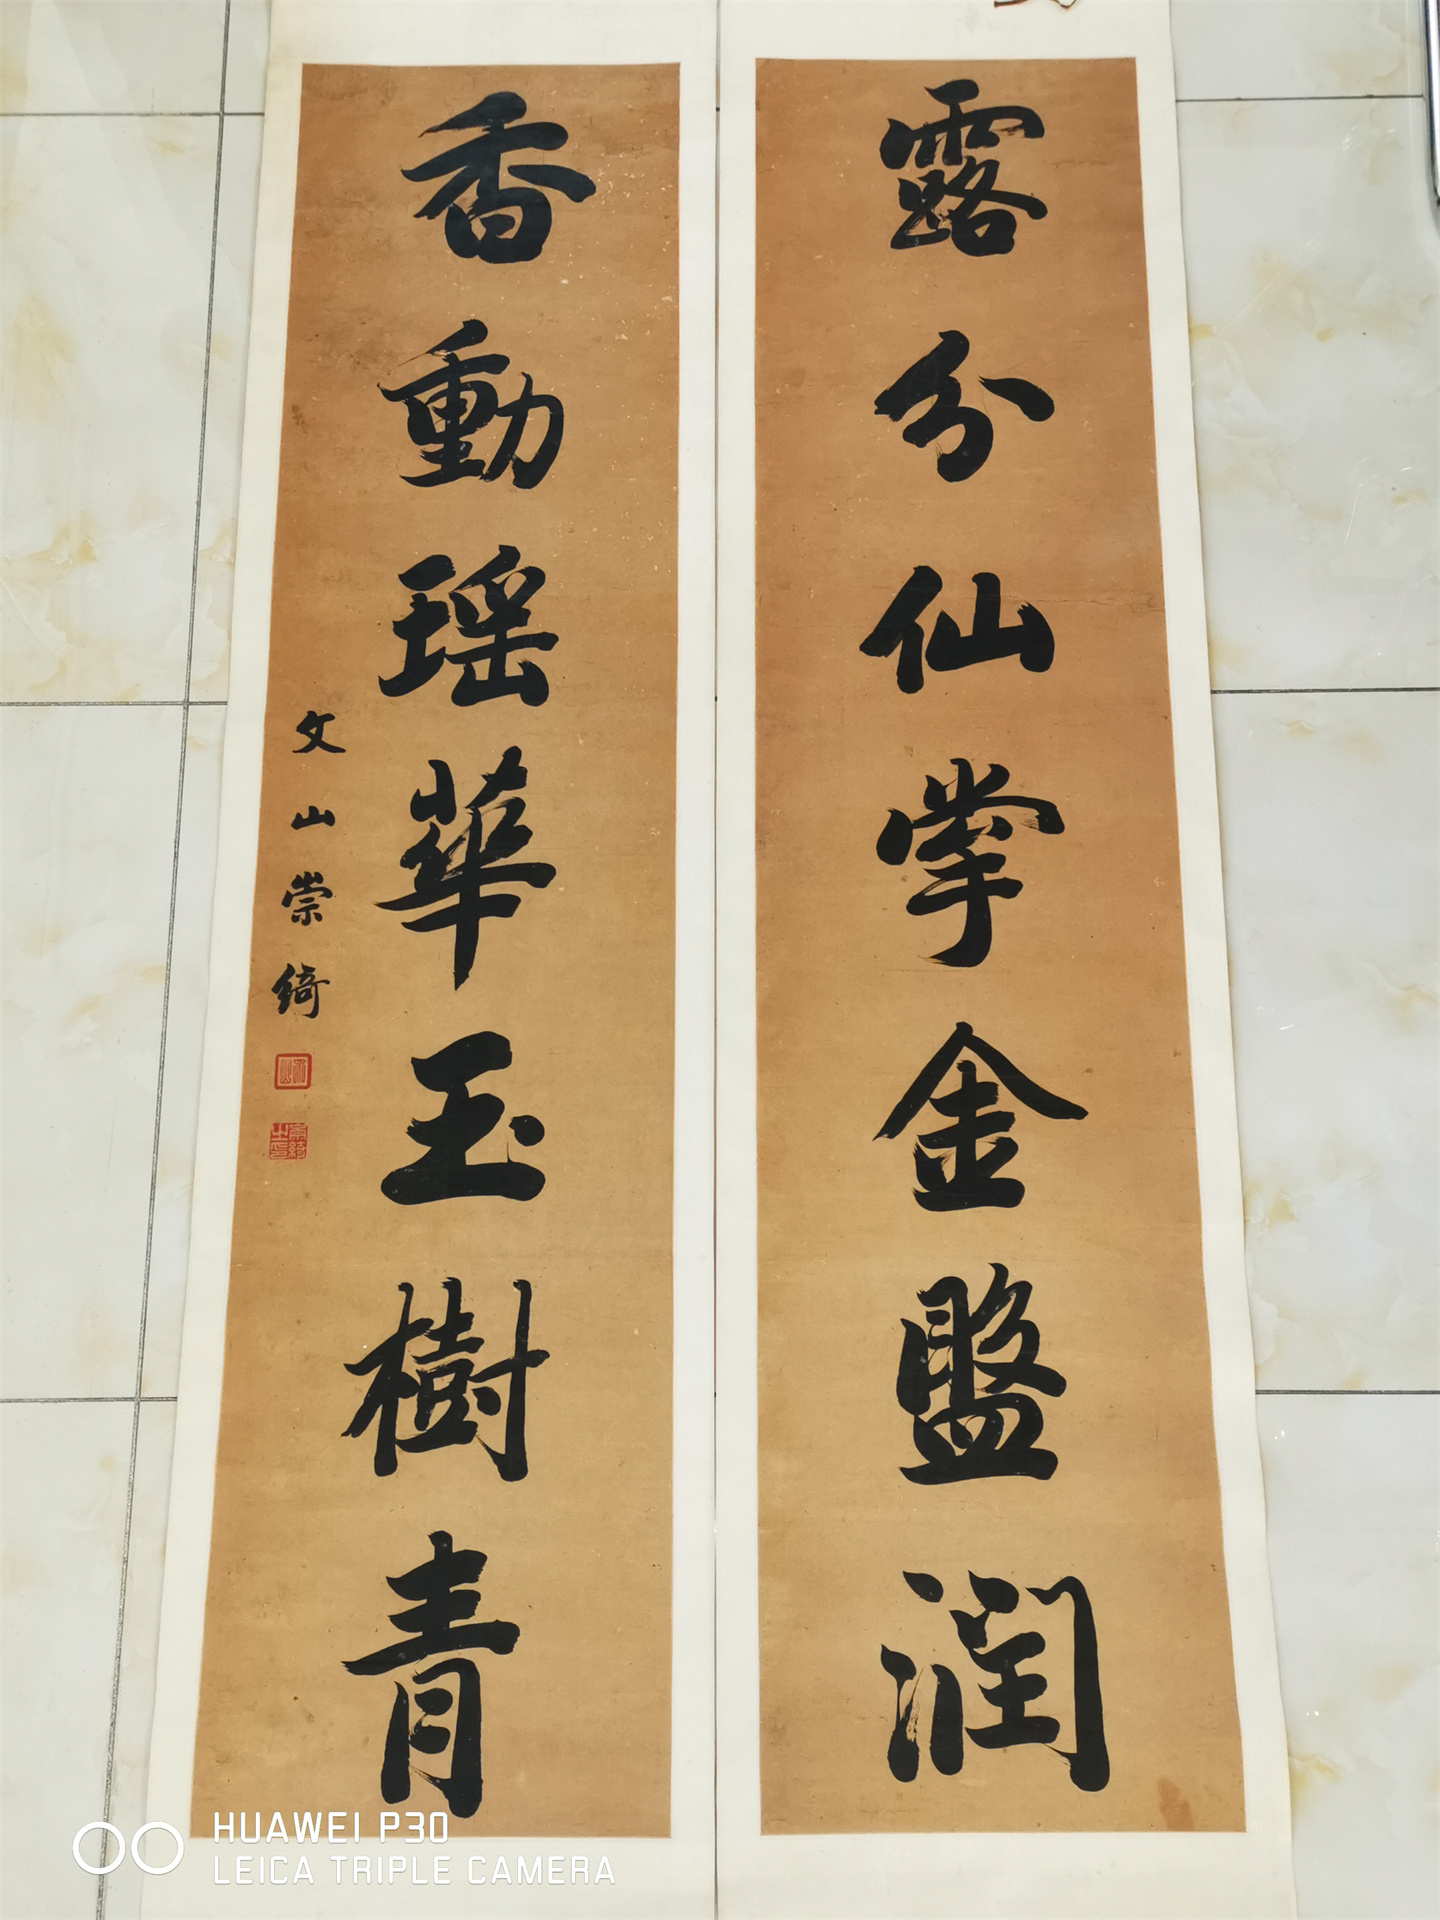 露分仙掌金盤潤
香動瑶華玉樹青
文山崇綺
HUAWEI P30
LEICA TRIPLE CAMERA